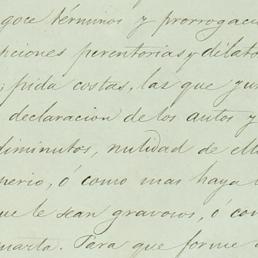 goce términos y prorrogacio
pciones perentorias y dilato
; pida costas, las que jur
declaracion de los autos y
diminutos, nulidad de ell
perio, ó como mas haya l
ue le sean gravosos, ó con
uarta. Para que forme